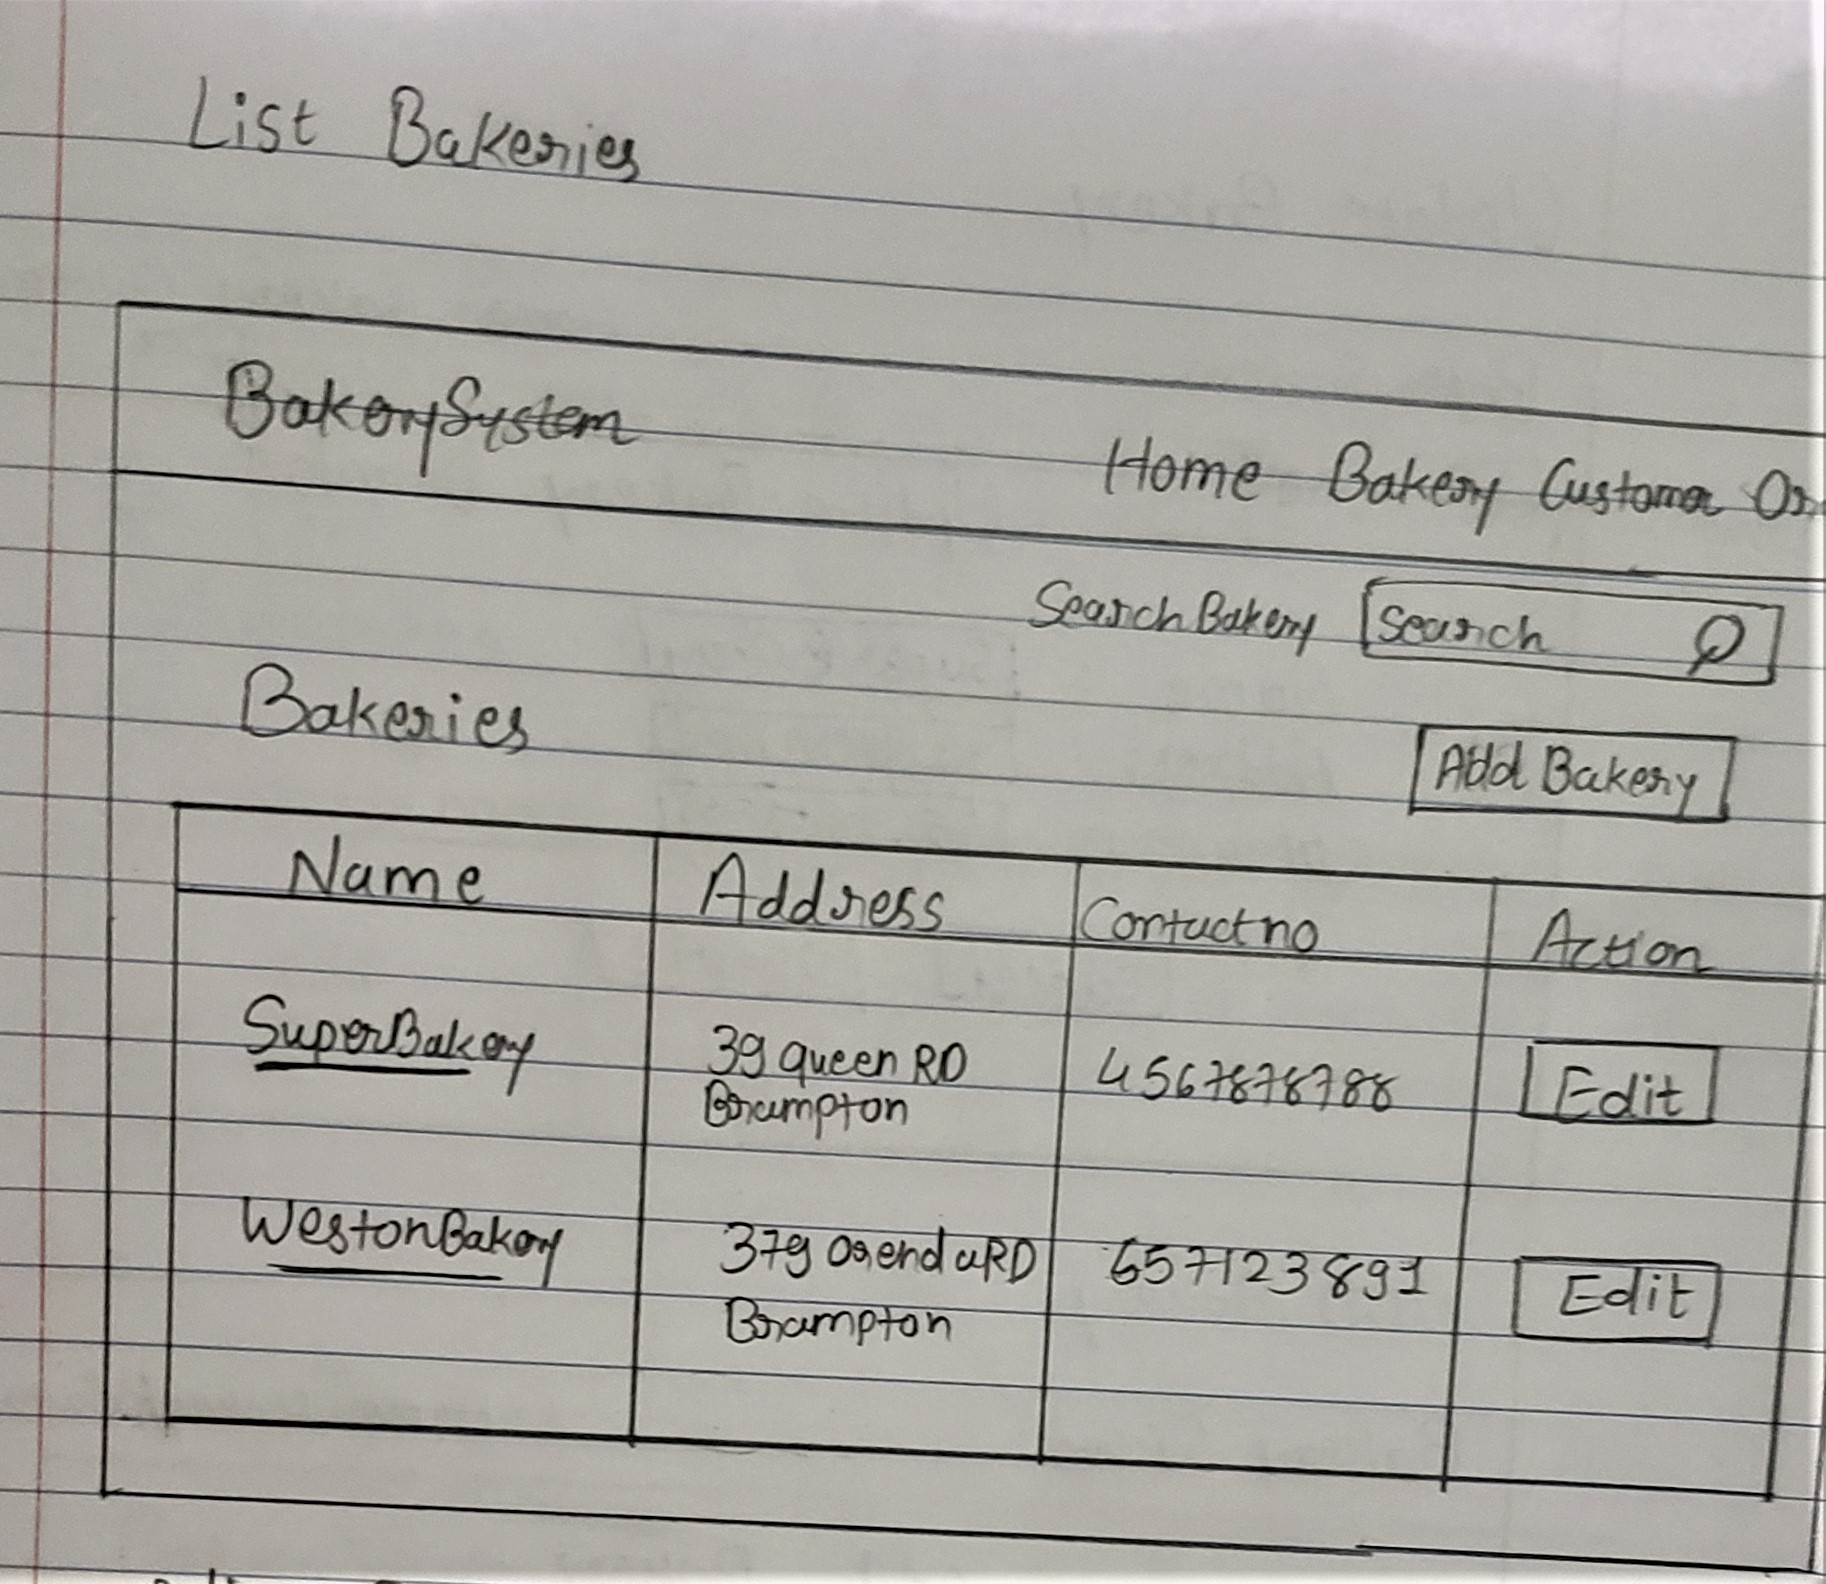 List Bakeries
BakerySystem
Home Bakery Customer Or
Search Bakery Search
Bakeries
Add Bakery
Name Address Contact no Action
SuperBakery 39 queen RD 4567878788 Edit
Brampton
WestonBakery 379 orenda RD 657123891 Edit
Brampton